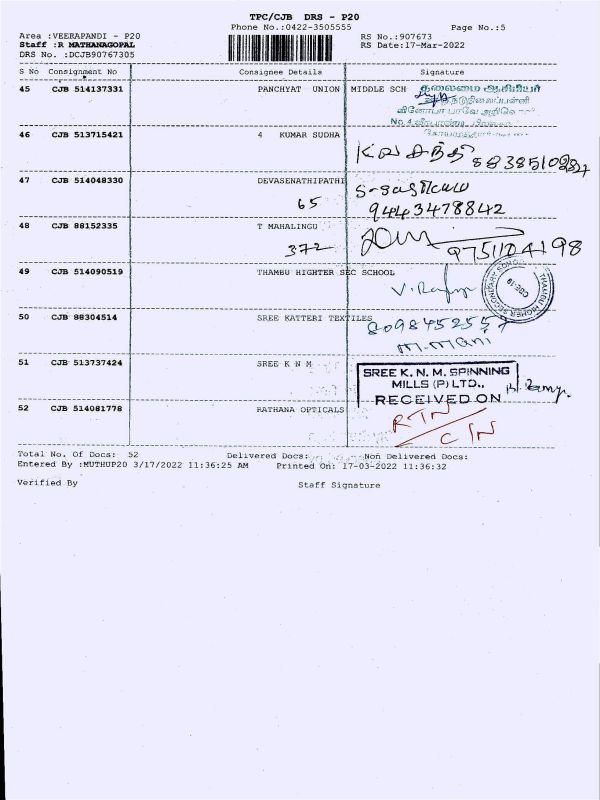 TPC/CJB DRS - P20
Phone No.:0422-3505555 Page No.:5
Area :VEERAPANDI - P20 RS No.:907673
Staff :R MATHANAGOPAL RS Date:17-Mar-2022
DRS No. :DCJB90767305
S No Consignment No Consignee Details Signature
45 CJB 514137331 PANCHYAT UNION MIDDLE SCH தலைமை ஆசிரியர்
46 CJB 513715421 4 KUMAR SUDHA
47 CJB 514048330 DEVASENATHIPATHI
65 9443478842
48 CJB 88152335 T MAHALINGU
372 9751104198
49 CJB 514090519 THAMBU HIGHTER SEC SCHOOL
V. Rajya
50 CJB 88304514 SREE KATTERI TEXTILES
8098452557
M. Mani
51 CJB 513737424 SREE K N M
SREE K. N. M. SPINNING
MILLS (P) LTD.,
RECEIVED ON
52 CJB 514081778 RATHANA OPTICALS
RTN
C IN
Total No. Of Docs: 52 Delivered Docs: Non Delivered Docs:
Entered By :MUTHUP20 3/17/2022 11:36:25 AM Printed On: 17-03-2022 11:36:32
Verified By Staff Signature